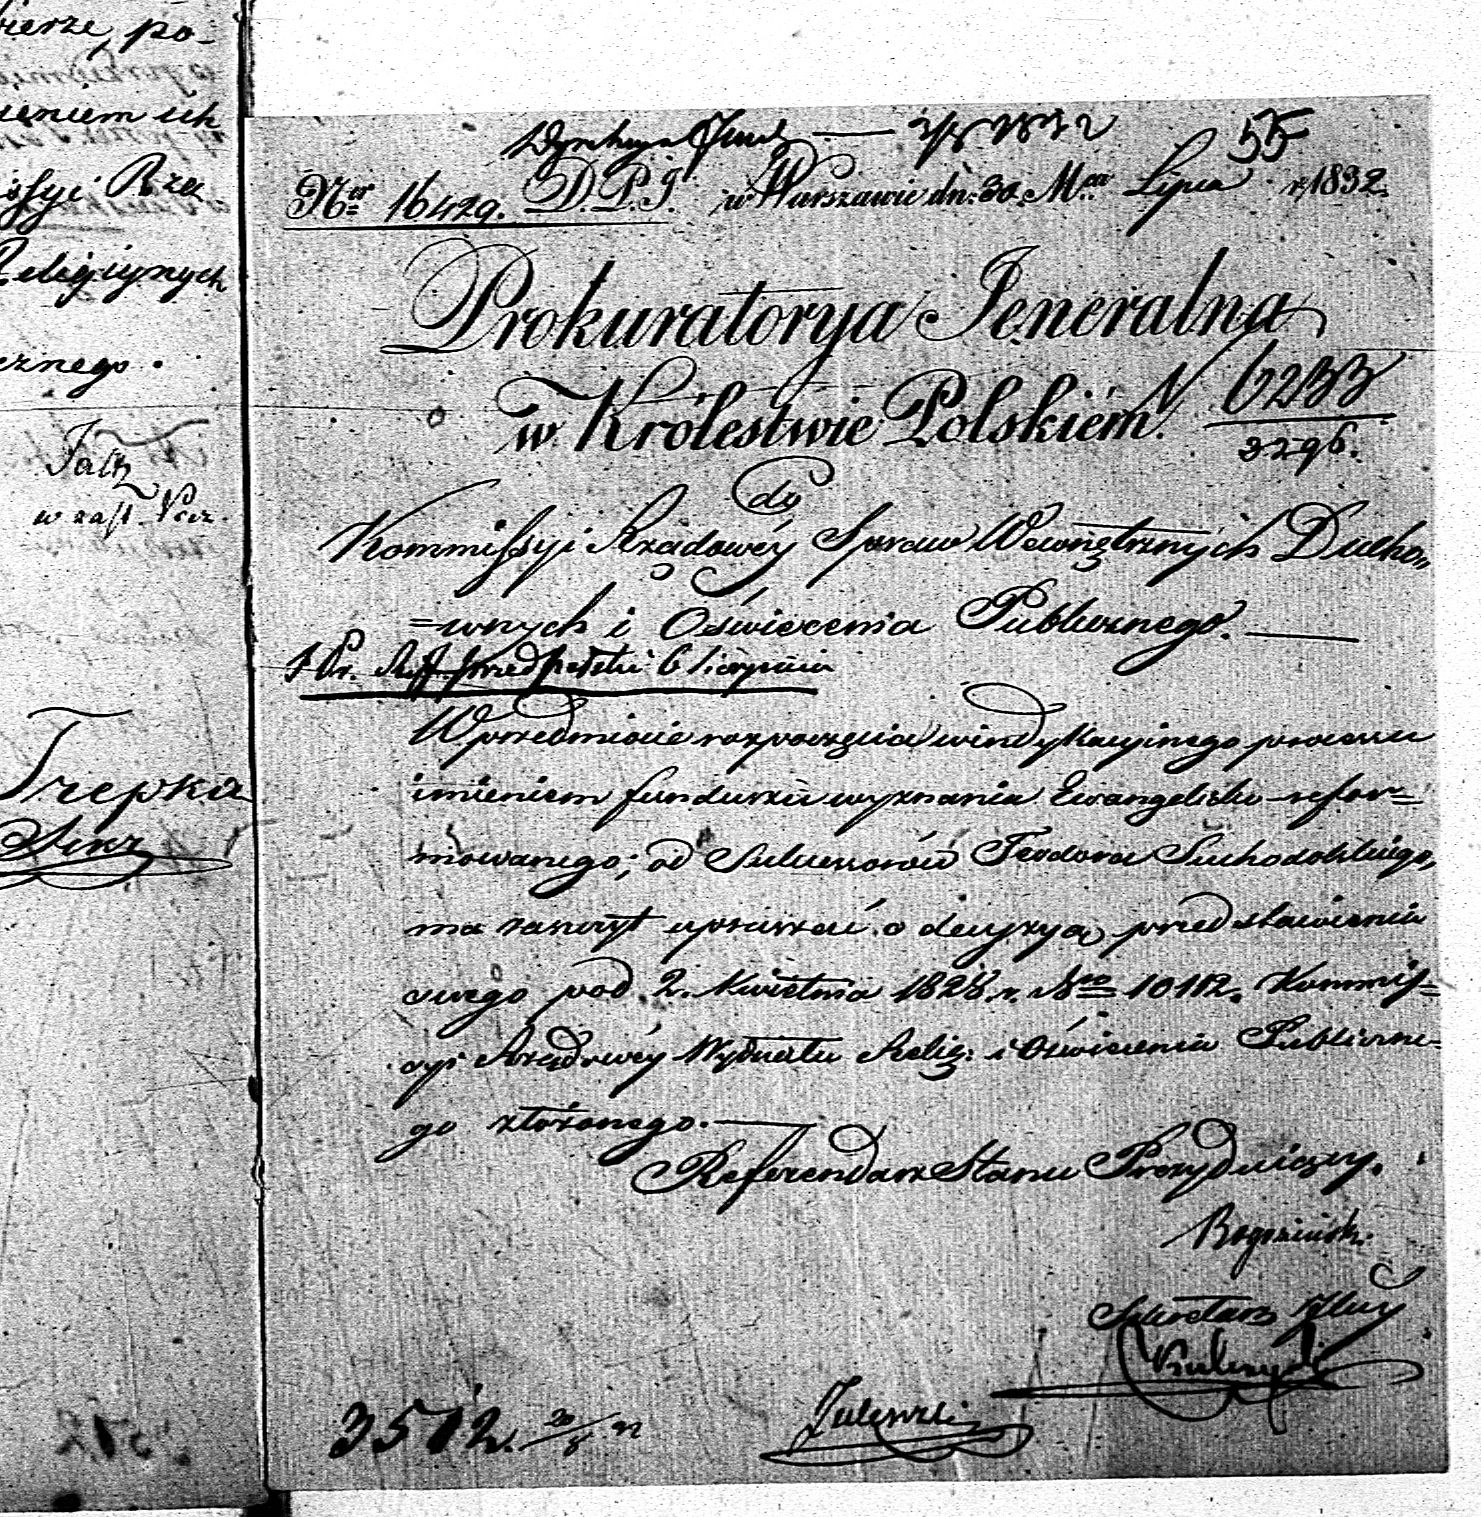 ierze, po-
ieniem ich
ossyi Rzą
Religiynych
cznego.
w zast.
Trepka
55
Nro 16429. D.P.J. w Warszawie dn: 30. Mca Lipca r. 1832.
Prokuratorya Jeneralna
w Królestwie Polskiém.
N 6233
3296.
do
Kommissyi Rządowéy Spraw Wewnętrznych Ducho„
=wnych i Oświecenia Publicznego.
6 Sierpnia
W przedmiocie rozpoczęcia windykacyinego processu
imieniem funduszu wyznania Ewangelicko-refor=
mowanego; od Sukcessorów Teodora Suchodolskiego,
ma zaszczyt upraszać o decyzyą przedstawienia
swego pod 2. Kwietnia 1828. r. Nro 10112. Kommis=
syi Rządowéy Wydziału Relig: i Oświecenia Publiczne-
go złożonego.
Referendarz Stanu Prezyduiący.
Sekretarz Jlny
3512.